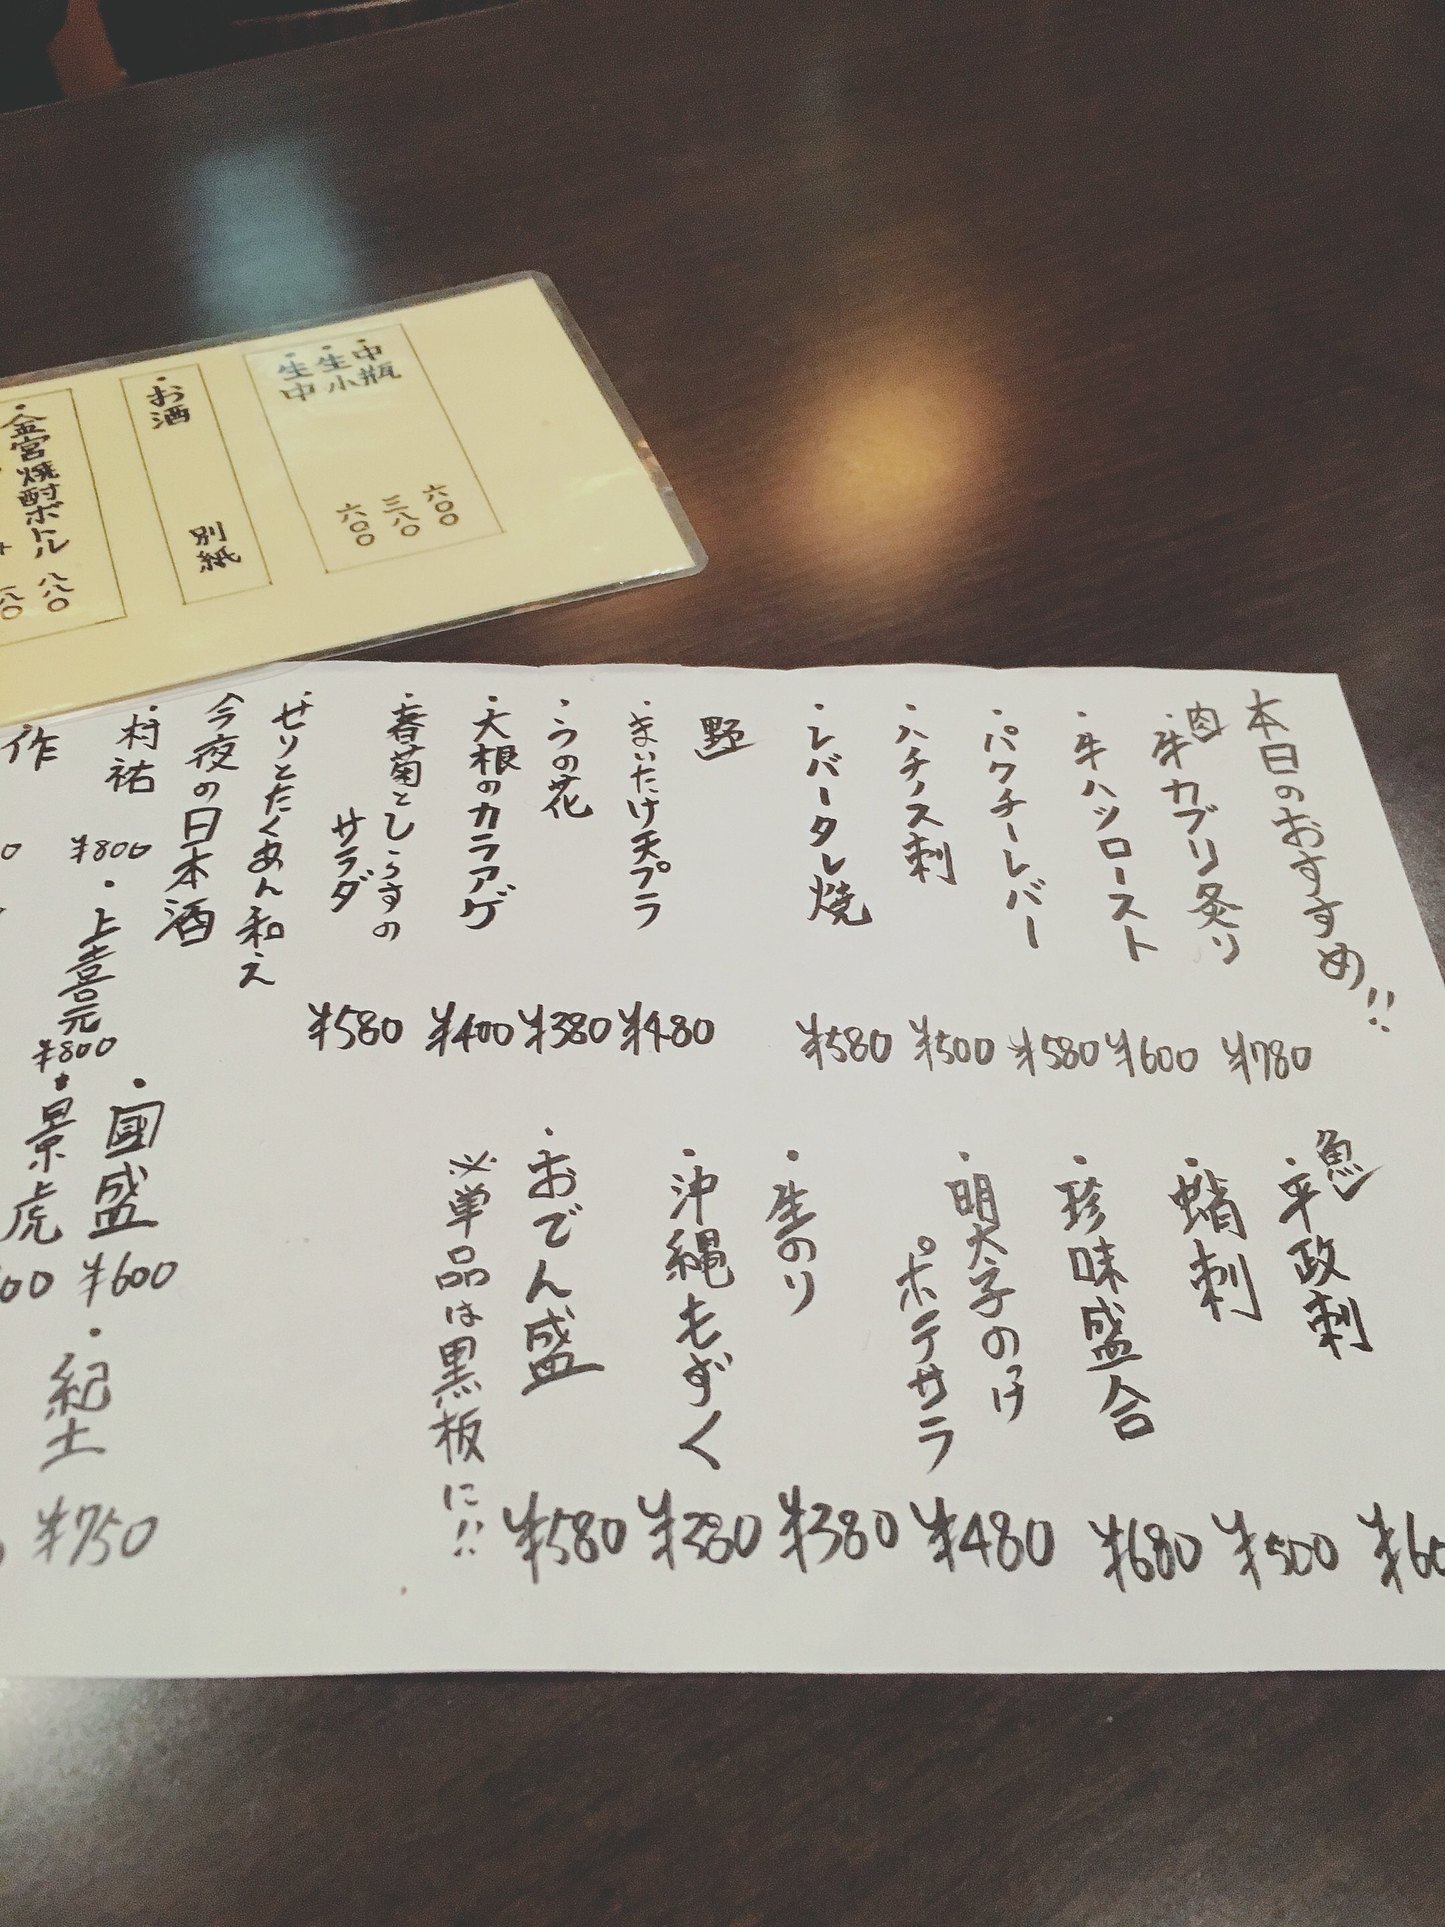 中瓶 六〇〇
・生小 三八〇
・生中 六〇〇
・お酒 別紙
・金宮焼酎ボトル
本日のおすすめ!!
肉
・牛カブリ炙り ¥780
・牛ハツロースト ¥600
・パクチーレバー ¥580
・ハチノス刺 ¥500
・レバータレ焼 ¥580
野
・まいたけ天プラ ¥480
・うの花 ¥380
・大根のカラアゲ ¥400
・春菊としらすの
サラダ ¥580
・せりとたくあん和え
魚
・平政刺
・蛸刺 ¥500
・珍味盛合 ¥680
・明太子のっけ
ポテサラ ¥480
・生のり ¥380
・沖縄もずく ¥380
・おでん盛 ¥580
※単品は黒板に!!
今夜の日本酒
・村祐 ¥800
・上喜元 ¥800
・國盛 ¥600
・紀土 ¥750
・作
・景虎